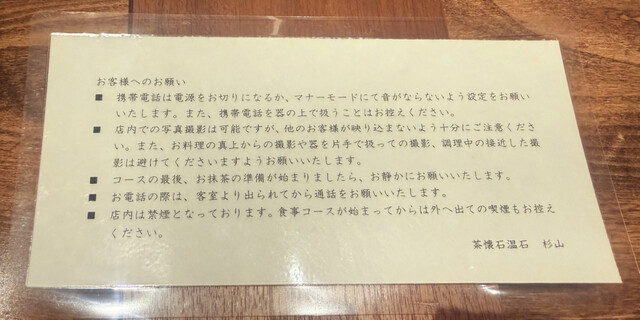 お客様へのお願い
■ 携帯電話は電源をお切りになるか、マナーモードにて音がならないよう設定をお願い
いたします。また、携帯電話を器の上で扱うことはお控えください。
■ 店内での写真撮影は可能ですが、他のお客様が映り込まないよう十分にご注意くださ
い。また、お料理の真上からの撮影や器を片手で扱っての撮影、調理中の接近した撮
影は避けてくださいますようお願いいたします。
■ コースの最後、お抹茶の準備が始まりましたら、お静かにお願いいたします。
■ お電話の際は、客室より出られてから通話をお願いいたします。
■ 店内は禁煙となっております。食事コースが始まってからは外へ出ての喫煙もお控え
ください。
茶懐石温石 杉山